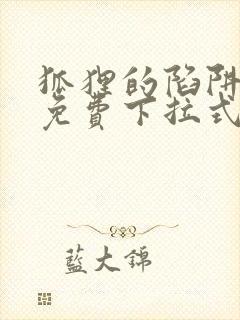 狐狸的陷阱
免費下拉式
藍大錦